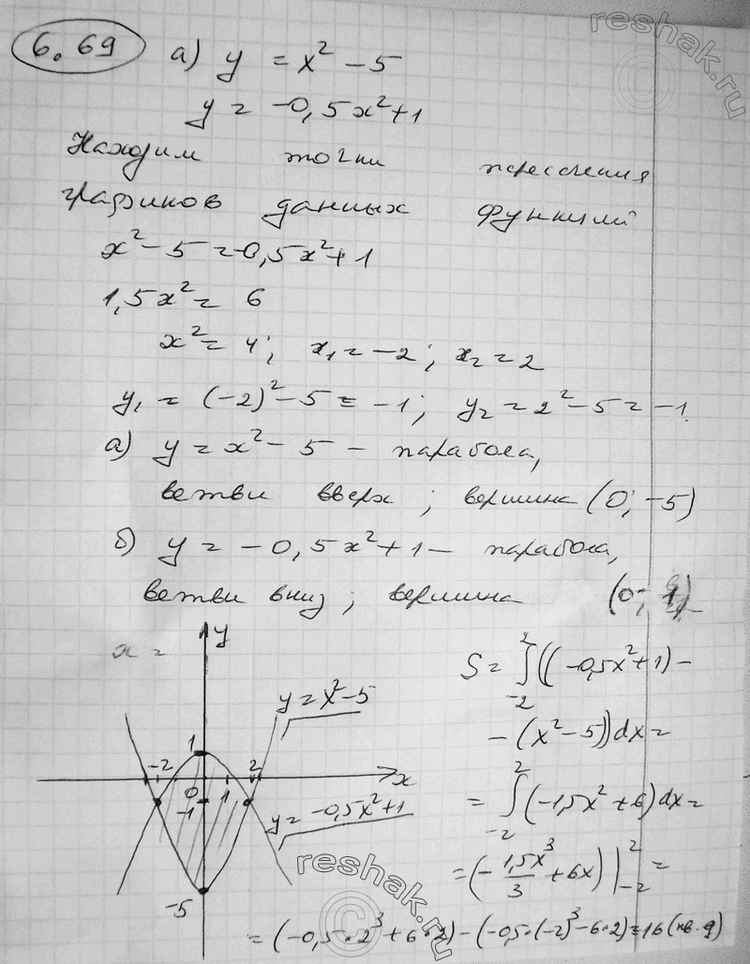 reshak.ru
6.69 а) y = x² - 5
y = -0,5x² + 1
Находим точки пересечения
графиков данных функций
x² - 5 = -0,5x² + 1
1,5x² = 6
x² = 4; x₁ = -2; x₂ = 2
y₁ = (-2)² - 5 = -1; y₂ = 2² - 5 = -1.
а) y = x² - 5 - парабола,
ветви вверх; вершина (0; -5)
б) y = -0,5x² + 1 - парабола,
ветви вниз; вершина (0; 1)
x =
y
y = x² - 5
1
-2
2
x
0
1
-1
y = -0,5x² + 1
-5
S = ∫₋₂² ((-0,5x² + 1) -
- (x² - 5)) dx =
= ∫₋₂² (-1,5x² + 6) dx =
= (- 1,5x³/3 + 6x) |₋₂² =
reshak.ru
= (-0,5 · 2³ + 6 · 2) - (-0,5 · (-2)³ - 6 · 2) = 16 (кв. ф)